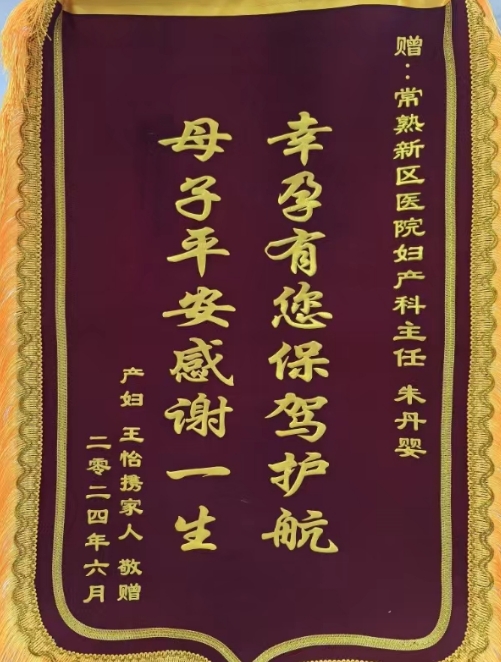 赠：常熟新区医院妇产科主任 朱丹婴
幸孕有您保驾护航
母子平安感谢一生
产妇 王怡携家人 敬赠
二零二四年六月